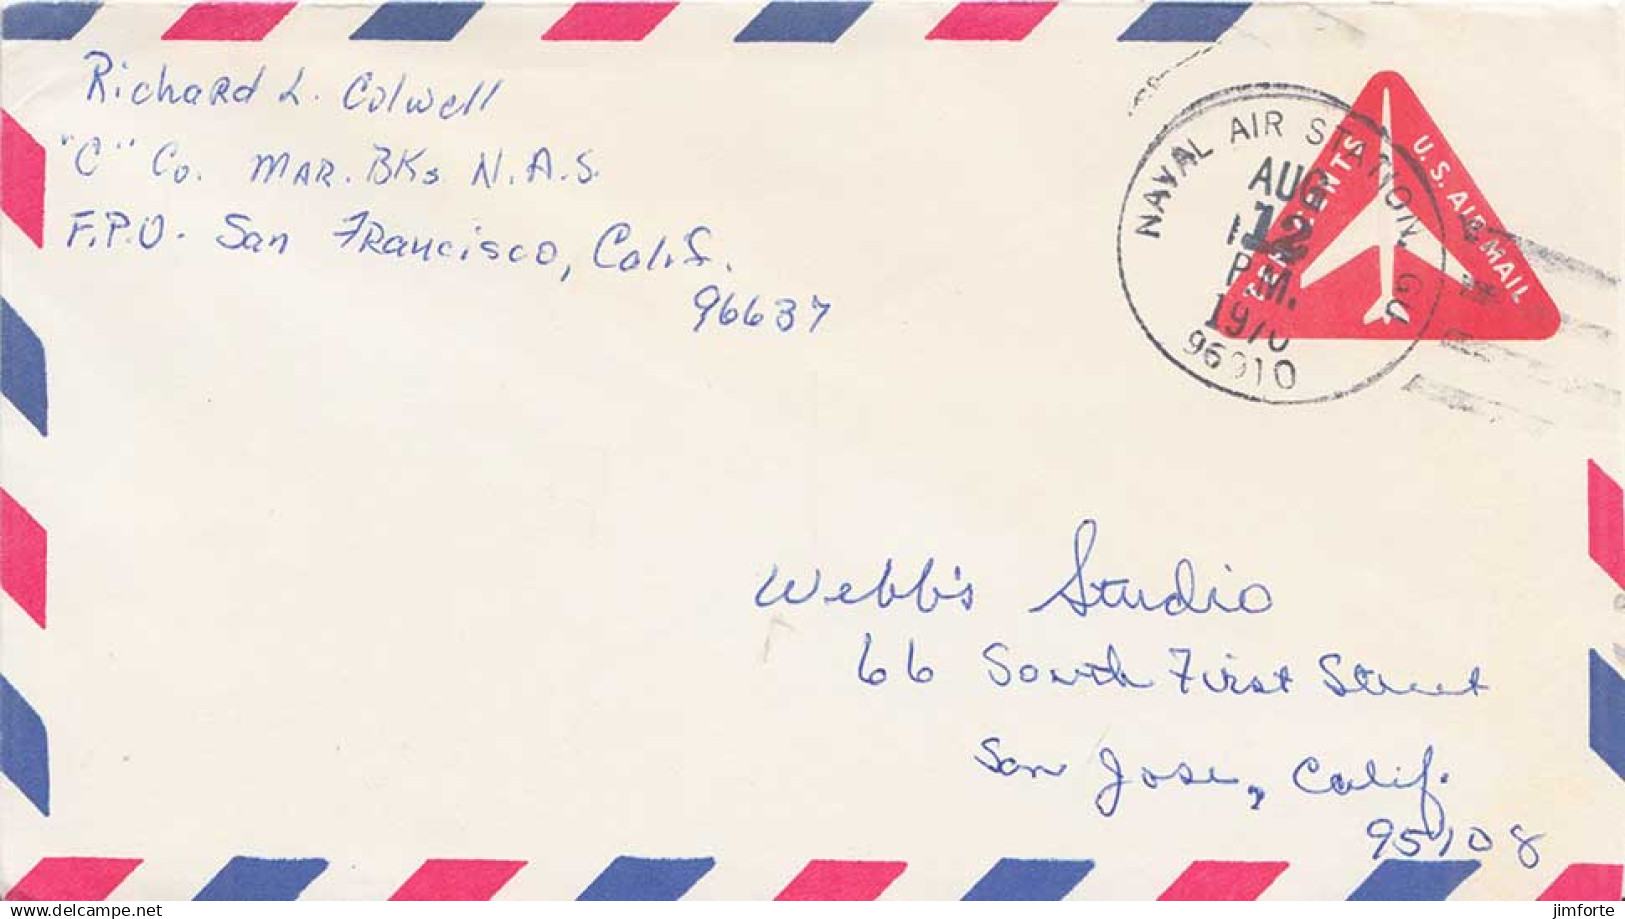 Richard L. Colwell
"C" Co. MAR. BKs N.A.S.
F.P.O. San Francisco, Calif.
96637
NAVAL AIR STATION, GU
AUG
12
P.M.
1970
96910
U.S. AIR MAIL
Webb's Studio
66 South First Street
San Jose, Calif.
95108
jimforte